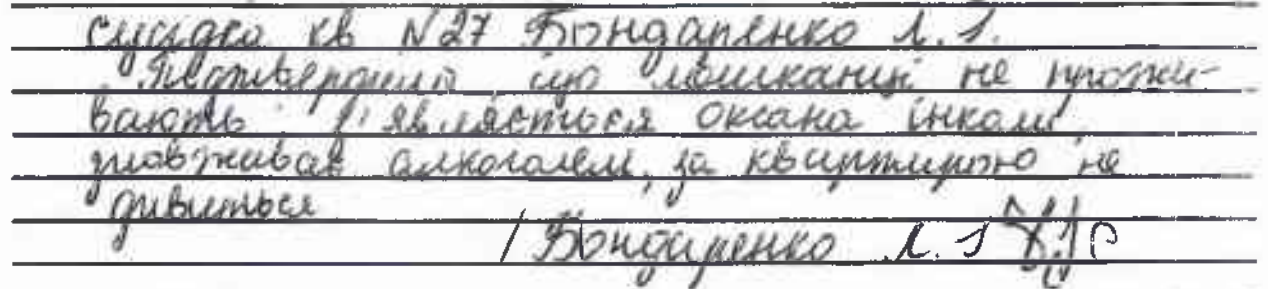 сусідка кв N27 Бондаренко Л.І.
Підтвердила, що мешканці не прожи-
вають, з'являється Оксана інколи,
зловживає алкоголем, за квартирою не
дивиться
/ Бондаренко Л.І